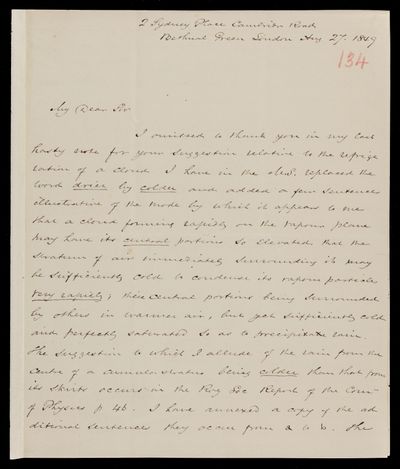 2 Sydney Place Cambridge Road
Bethnal Green London Aug 27. 1849
134
My Dear Sir
I omitted to thank you in my last
hasty note for your suggestion relative to the refrige
ration of a cloud I have in the MS. replaced the
word drier by colder and added a few sentences
illustrative of the mode by which it appears to me
that a cloud forming rapidly on the vapour plane
may have its central portion so elevated that the
stratum of air immediately surrounding it may
be sufficiently cold to condense its vapour particles
very rapidly; these central portions being surrounded
by others in warmer air, but yet sufficiently cold
and perfectly saturated so as to precipitate rain.
The suggestion to which I allude of the rain from the
centre of a cumulostratus being colder than that from
its skirts occurs in the Roy Soc Report of the Com
of Physics p 46. I have annexed a copy of the ad
ditional sentences they occur from a to b. The